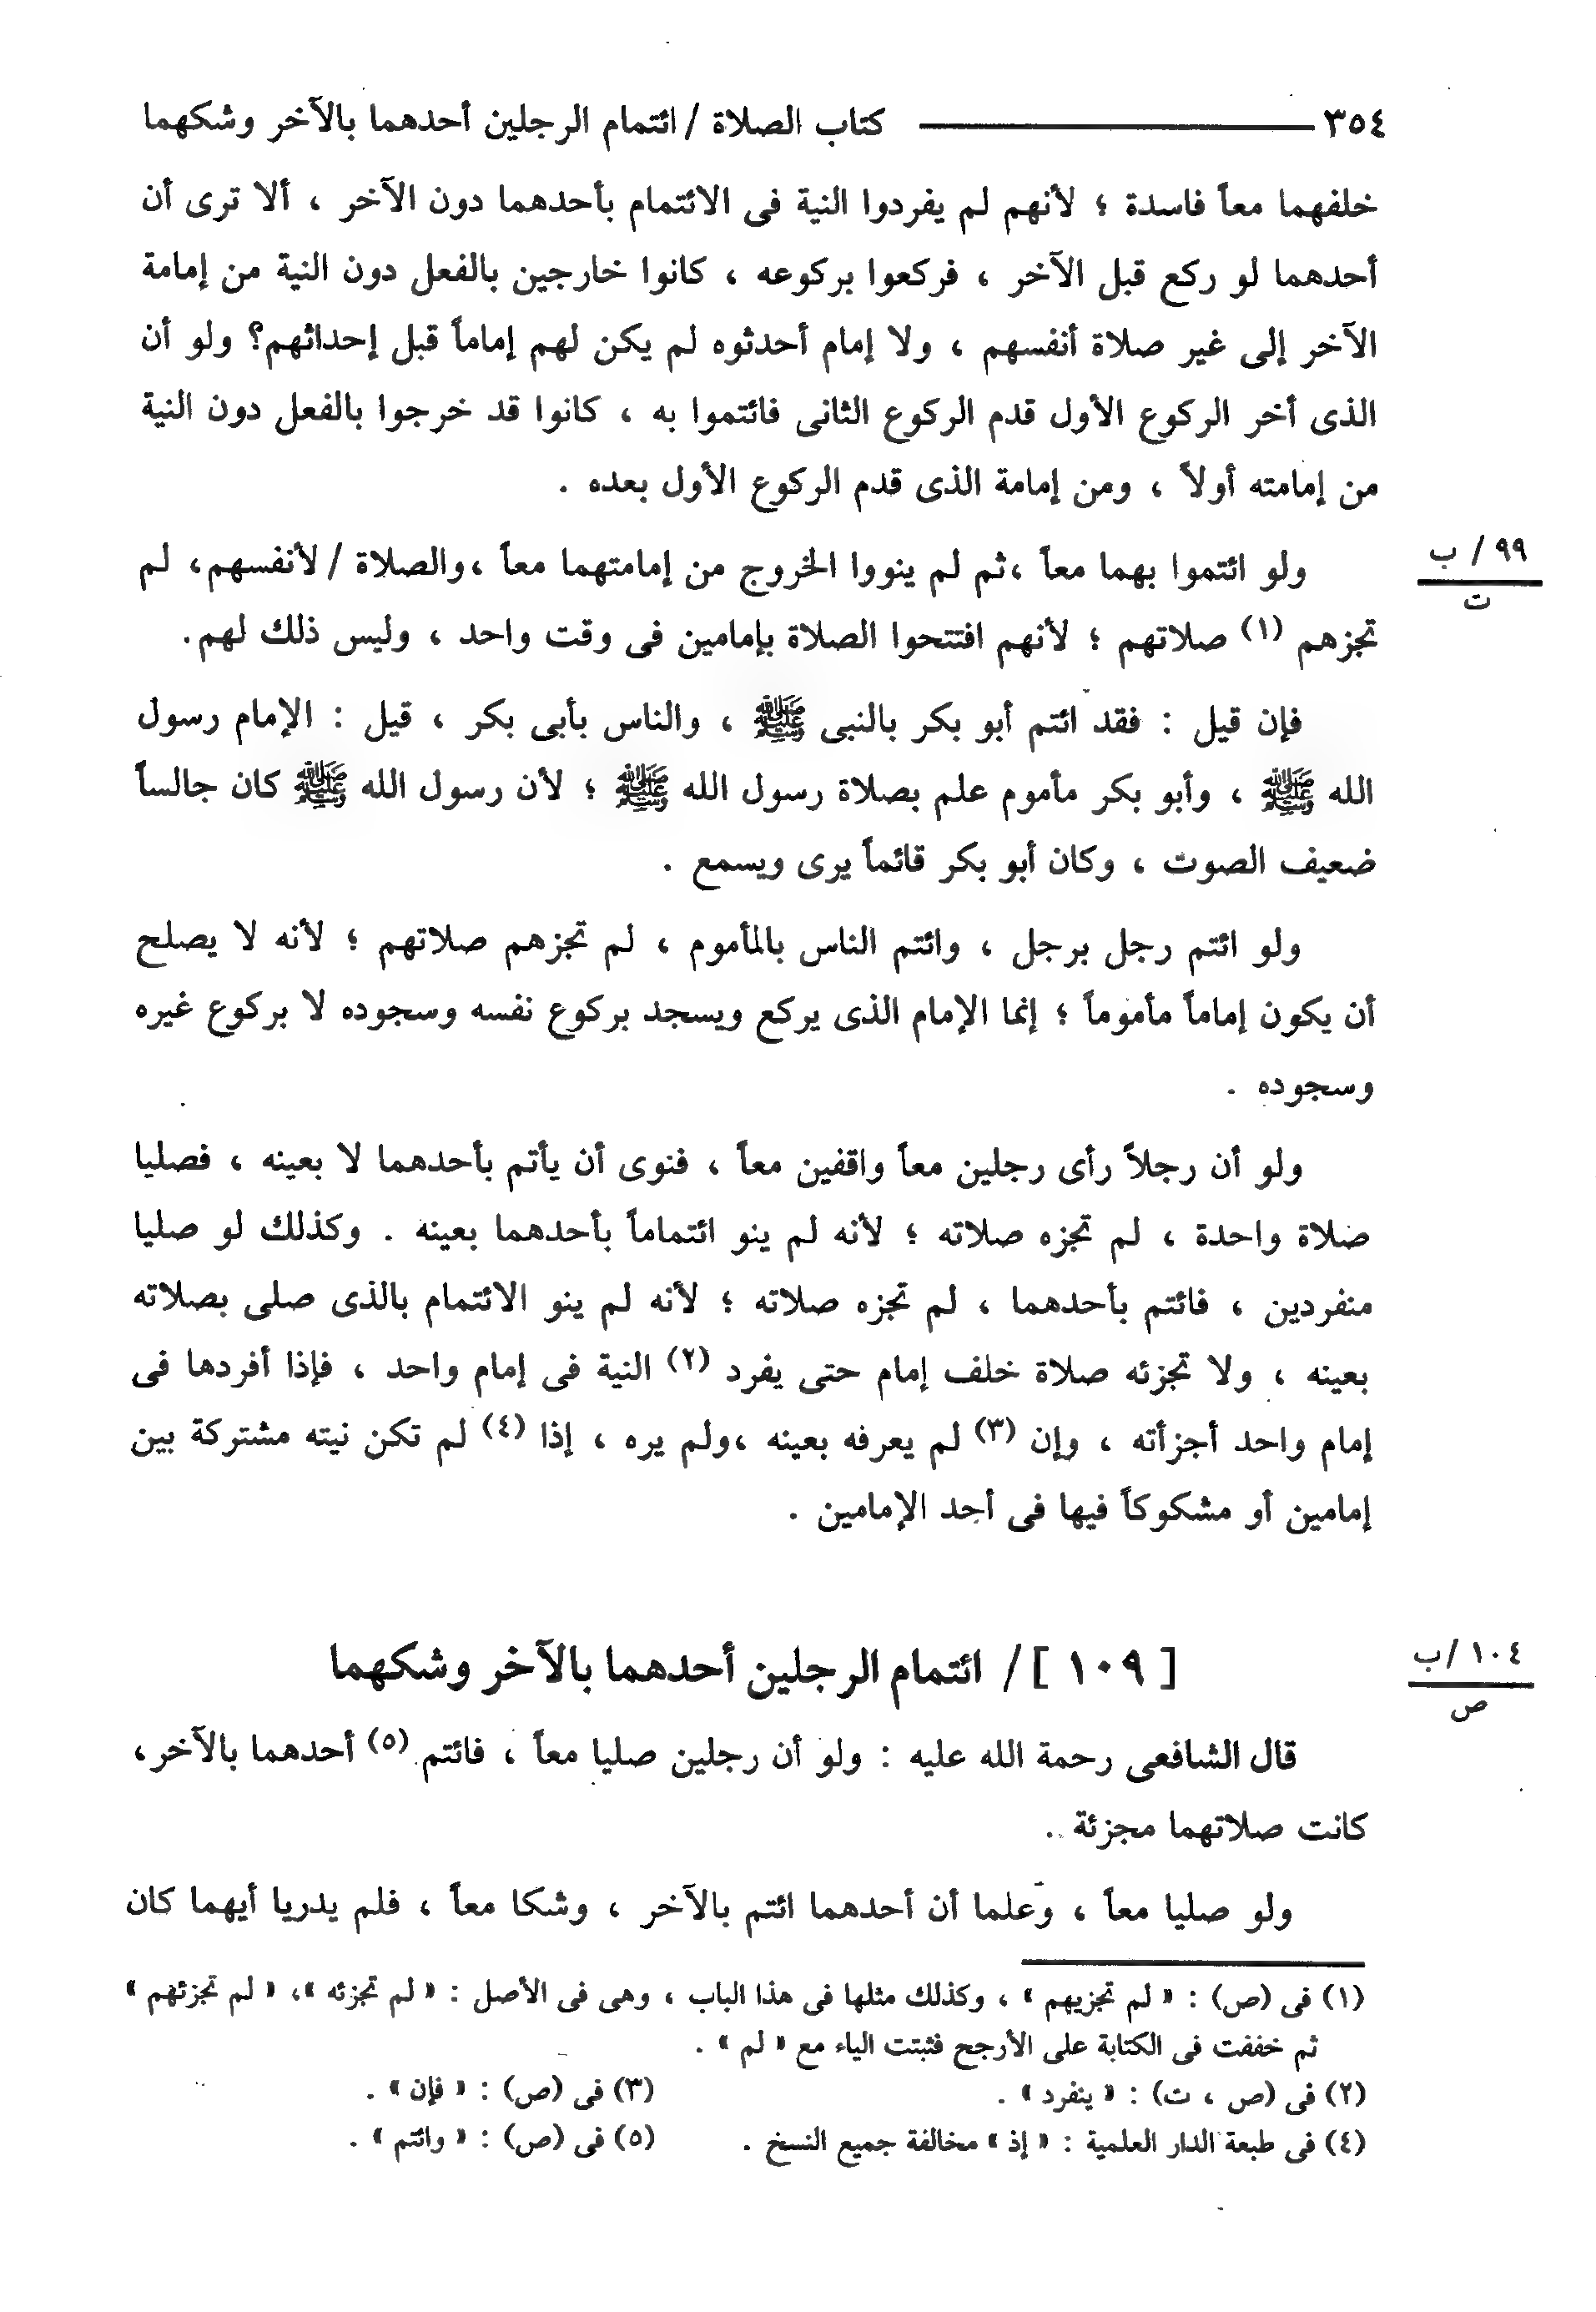 ٣٥٤ ـــــ كتاب الصلاة / ائتمام الرجلين أحدهما بالآخر وشكهما
خلفهما معاً فاسدة ؛ لأنهم لم يفردوا النية فى الائتمام بأحدهما دون الآخر ، ألا ترى أن
أحدهما لو ركع قبل الآخر ، فركعوا بركوعه ، كانوا خارجين بالفعل دون النية من إمامة
الآخر إلى غير صلاة أنفسهم ، ولا إمام أحدثوه لم يكن لهم إماماً قبل إحداثهم؟ ولو أن
الذى أخر الركوع الأول قدم الركوع الثانى فائتموا به ، كانوا قد خرجوا بالفعل دون النية
من إمامته أولاً ، ومن إمامة الذى قدم الركوع الأول بعده .
ولو ائتموا بهما معاً ،ثم لم ينووا الخروج من إمامتهما معاً ،والصلاة / لأنفسهم، لم
٩٩ / ب
ت
تجزهم (١) صلاتهم ؛ لأنهم افتتحوا الصلاة بإمامين فى وقت واحد ، وليس ذلك لهم.
فإن قيل : فقد ائتم أبو بكر بالنبى ﷺ ، والناس بأبى بكر ، قيل : الإمام رسول
الله ﷺ ، وأبو بكر مأموم علم بصلاة رسول الله ﷺ ؛ لأن رسول الله ﷺ كان جالساً
ضعيف الصوت ، وكان أبو بكر قائماً يرى ويسمع .
ولو ائتم رجل برجل ، وائتم الناس بالمأموم ، لم تجزهم صلاتهم ؛ لأنه لا يصلح
أن يكون إماماً مأموماً ؛ إنما الإمام الذى يركع ويسجد بركوع نفسه وسجوده لا بركوع غيره
وسجوده .
ولو أن رجلاً رأى رجلين معاً واقفين معاً ، فنوى أن يأتم بأحدهما لا بعينه ، فصليا
صلاة واحدة ، لم تجزه صلاته ؛ لأنه لم ينو ائتماماً بأحدهما بعينه . وكذلك لو صليا
منفردين ، فائتم بأحدهما ، لم تجزه صلاته ؛ لأنه لم ينو الائتمام بالذى صلى بصلاته
بعينه ، ولا تجزئه صلاة خلف إمام حتى يفرد (٢) النية فى إمام واحد ، فإذا أفردها فى
إمام واحد أجزأته ، وإن (٣) لم يعرفه بعينه ،ولم يره ، إذا (٤) لم تكن نيته مشتركة بين
إمامين أو مشكوكاً فيها فى أحد الإمامين .
[ ١٠٩ ] / ائتمام الرجلين أحدهما بالآخر وشكهما
١٠٤ /ب
ص
قال الشافعى رحمة الله عليه : ولو أن رجلين صليا معاً ، فائتم (٥) أحدهما بالآخر،
كانت صلاتهما مجزئة .
ولو صليا معاً ، وعلما أن أحدهما ائتم بالآخر ، وشكا معاً ، فلم يدريا أيهما كان
(١) فى (ص) : « لم تجزيهم » ، وكذلك مثلها فى هذا الباب ، وهى فى الأصل : « لم تجزئه »، « لم تجزئهم »
ثم خففت فى الكتابة على الأرجح فثبتت الياء مع « لم » .
(٢) فى (ص ، ت) : « ينفرد » . (٣) فى (ص) : « فإن » .
(٤) فى طبعة الدار العلمية : « إذ » مخالفة جميع النسخ . (٥) فى (ص) : « وائتم » .